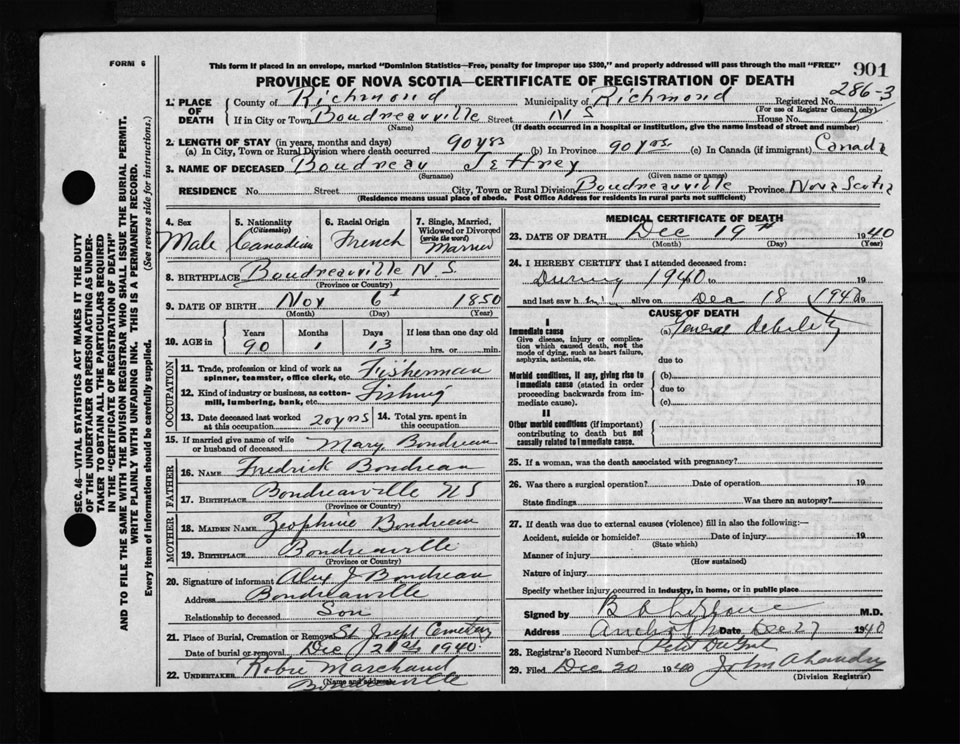 FORM 6
This form if placed in an envelope, marked "Dominion Statistics—Free, penalty for improper use $300," and properly addressed will pass through the mail "FREE"
901
PROVINCE OF NOVA SCOTIA—CERTIFICATE OF REGISTRATION OF DEATH
286-3
1. PLACE OF DEATH County of Richmond Municipality of Richmond Registered No.
(For use of Registrar General only)
If in City or Town Boudreauville Street N S House No.
(Name) (If death occurred in a hospital or institution, give the name instead of street and number)
2. LENGTH OF STAY (in years, months and days)
(a) In City, Town or Rural Division where death occurred 90 yrs (b) In Province 90 yrs. (c) In Canada (if immigrant) Canada
3. NAME OF DECEASED Boudreau Jeffrey
(Surname) (Given name or names)
RESIDENCE No. Street City, Town or Rural Division Boudreauville Province Nova Scotia
(Residence means usual place of abode. Post Office Address for residents in rural parts not sufficient)
4. Sex Male
5. Nationality (Citizenship) Canadian
6. Racial Origin French
7. Single, Married, Widowed or Divorced (write the word)
8. BIRTHPLACE Boudreauville N. S.
(Province or Country)
9. DATE OF BIRTH Nov 6 1850
(Month) (Day) (Year)
10. AGE in Years Months Days If less than one day old
90 1 13 hrs. or min.
OCCUPATION
11. Trade, profession or kind of work as spinner, teamster, office clerk, etc. Fisherman
12. Kind of industry or business, as cotton-mill, lumbering, bank, etc. Fishing
13. Date deceased last worked at this occupation 20 yrs
14. Total yrs. spent in this occupation
15. If married give name of wife or husband of deceased Mary Boudreau
FATHER
16. NAME Fredrick Boudreau
17. BIRTHPLACE Boudreauville N S
(Province or Country)
MOTHER
18. MAIDEN NAME Zeophine Boudreau
19. BIRTHPLACE Boudreauville
(Province or Country)
20. Signature of informant Alex J Boudreau
Address Boudreauville
Relationship to deceased Son
21. Place of Burial, Cremation or Removal St Joseph Cemetery
Date of burial or removal Dec 21st 1940
22. UNDERTAKER Robie Marchand
(Name and address) Boudreauville
MEDICAL CERTIFICATE OF DEATH
23. DATE OF DEATH Dec 19th 1940
(Month) (Day) (Year)
24. I HEREBY CERTIFY that I attended deceased from:
During 1940 to 19
and last saw h alive on Dec 18 1940 19
CAUSE OF DEATH
I
Immediate cause (a) General debility
Give disease, injury or complication which caused death, not the mode of dying, such as heart failure, asphyxia, asthenia, etc.
due to
Morbid conditions, if any, giving rise to immediate cause (stated in order proceeding backwards from immediate cause).
(b)
due to
(c)
II
Other morbid conditions (if important) contributing to death but not causally related to immediate cause.
25. If a woman, was the death associated with pregnancy?
26. Was there a surgical operation? Date of operation 19
State findings Was there an autopsy?
27. If death was due to external causes (violence) fill in also the following:—
Accident, suicide or homicide? Date of injury 19
(State which)
Manner of injury
(How sustained)
Nature of injury
Specify whether injury occurred in industry, in home, or in public place
Signed by M.D.
Address Date Dec 27 1940
28. Registrar's Record Number
29. Filed Dec 20 1940
(Division Registrar)
SEC. 46—VITAL STATISTICS ACT MAKES IT THE DUTY
OF THE UNDERTAKER OR PERSON ACTING AS UNDER-
TAKER TO OBTAIN ALL THE PARTICULARS REQUIRED
IN THE "CERTIFICATE OF REGISTRATION OF DEATH"
AND TO FILE THE SAME WITH THE DIVISION REGISTRAR WHO SHALL ISSUE THE BURIAL PERMIT.
WRITE PLAINLY WITH UNFADING INK. THIS IS A PERMANENT RECORD.
Every item of information should be carefully supplied. (See reverse side for instructions.)